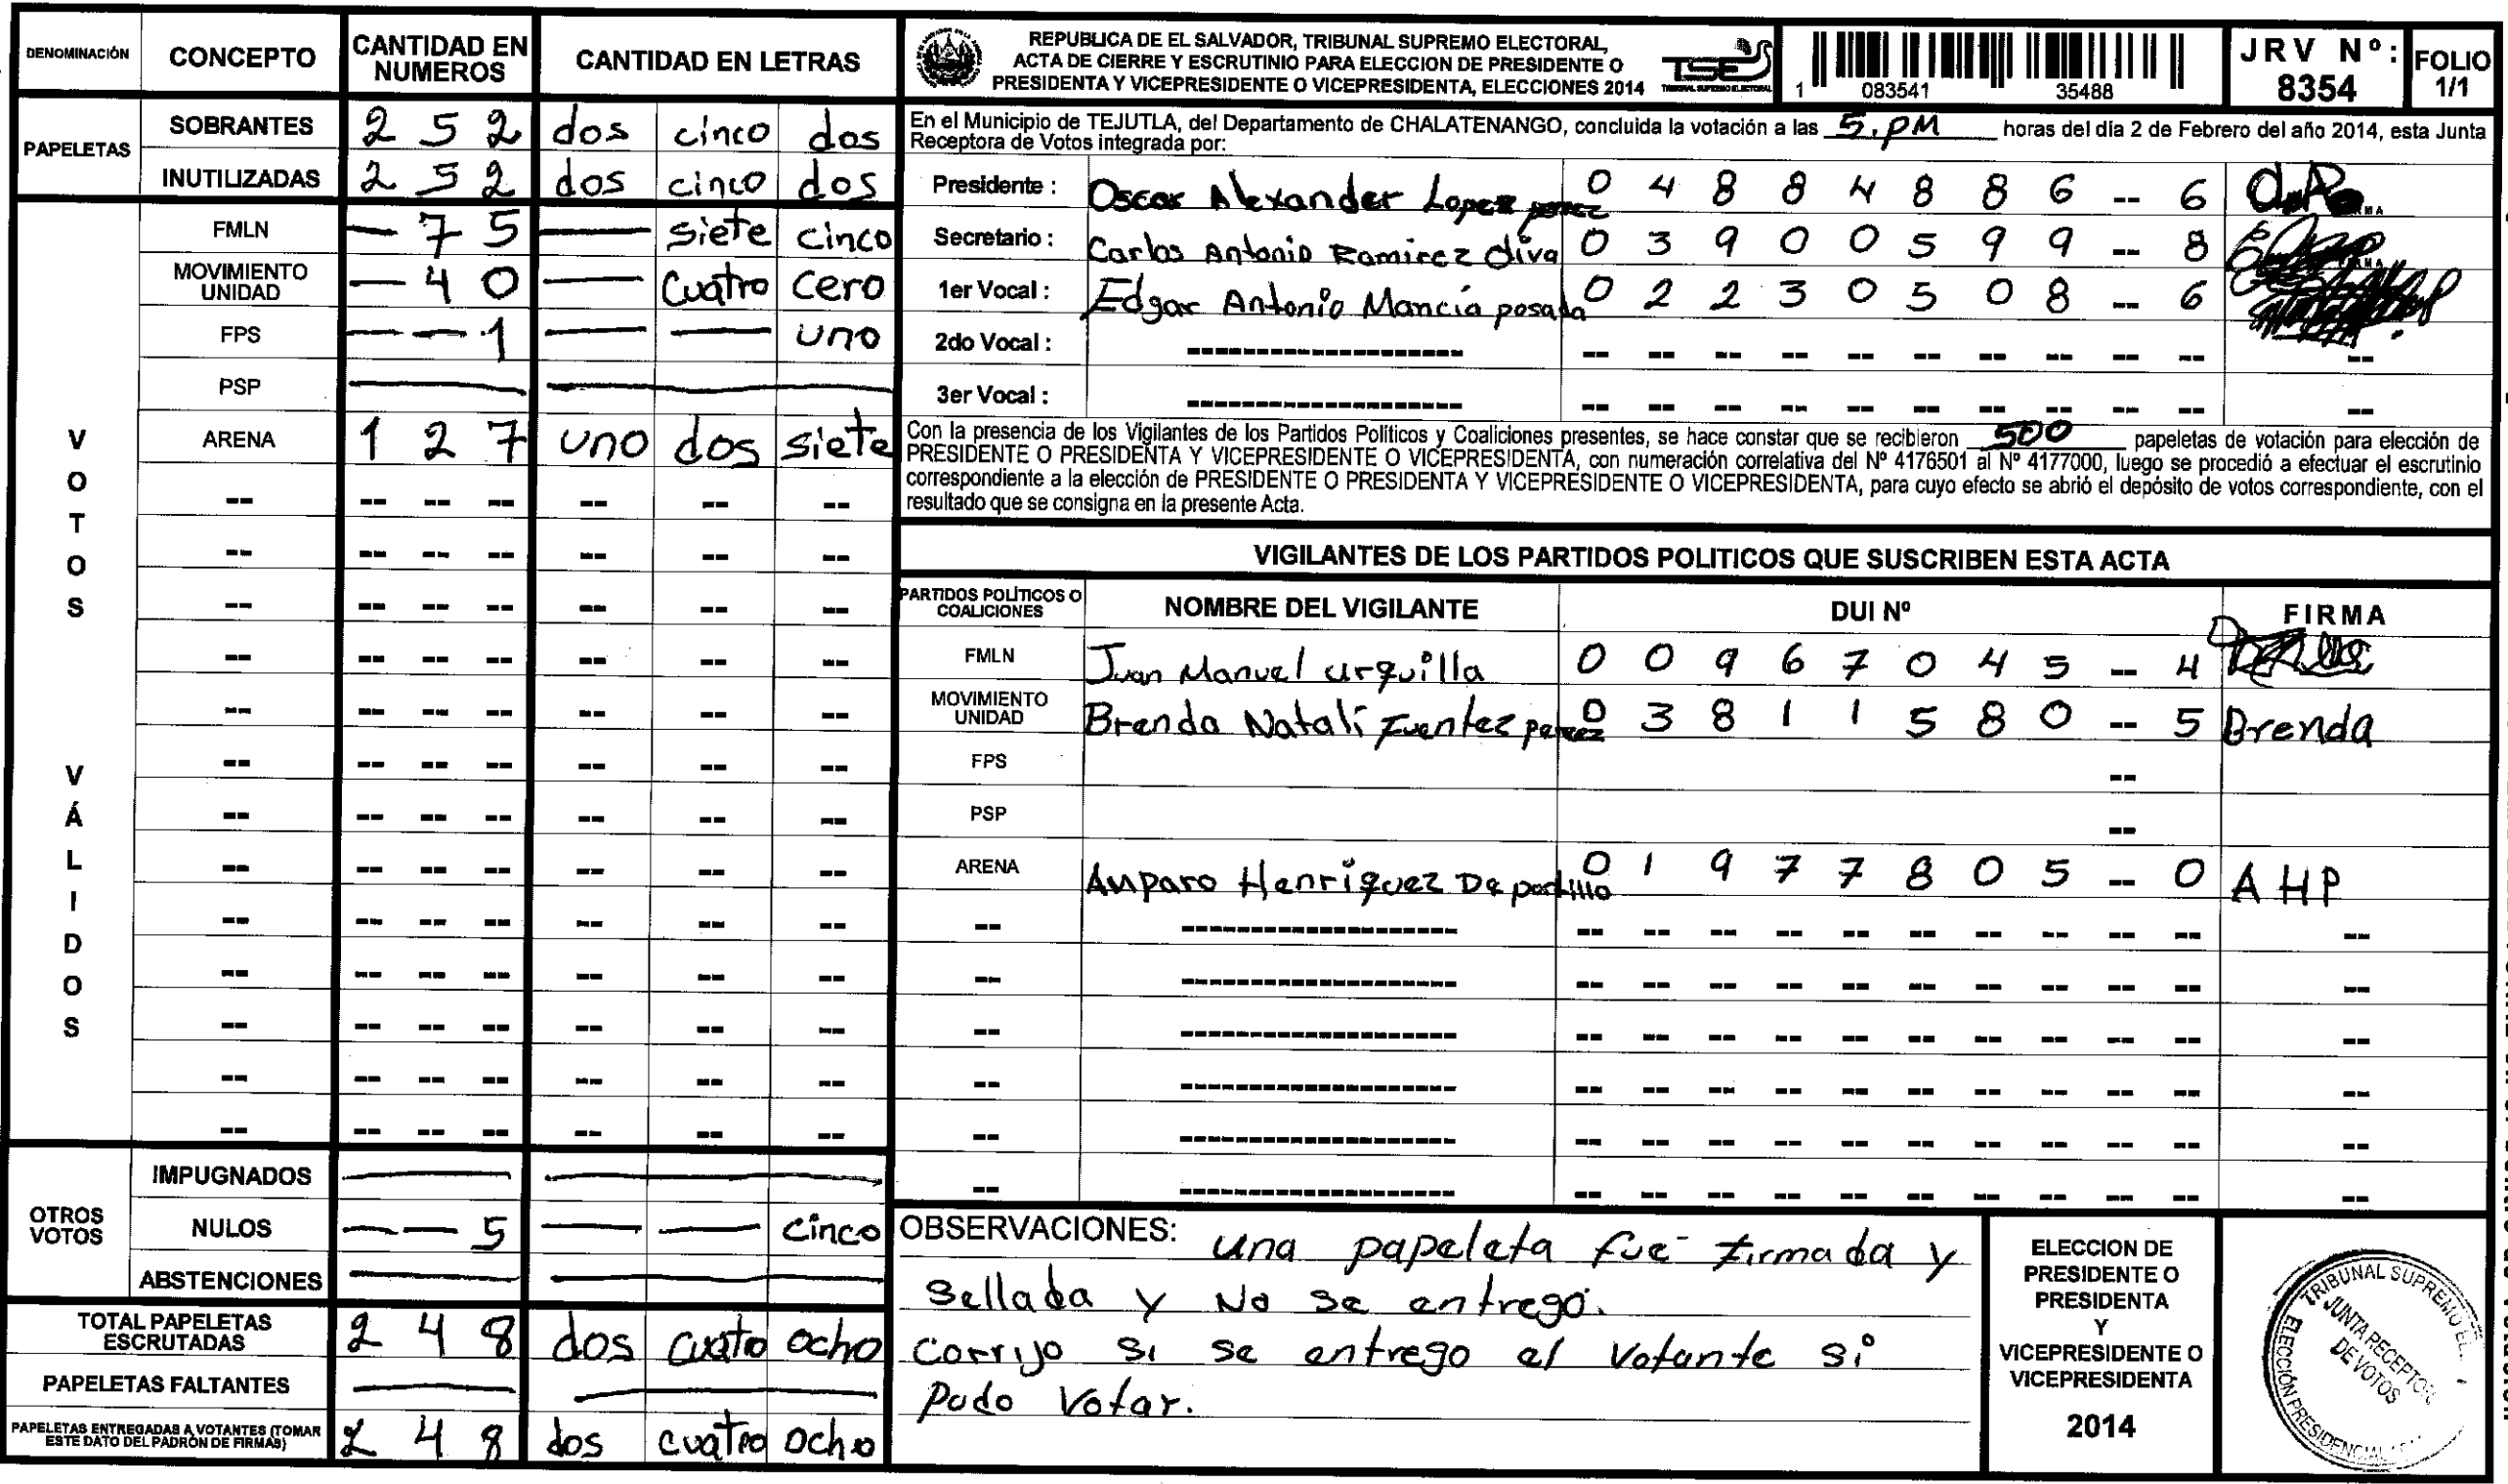 DENOMINACIÓN CONCEPTO CANTIDAD EN NUMEROS CANTIDAD EN LETRAS
PAPELETAS
SOBRANTES 2 5 2 dos cinco dos
INUTILIZADAS 2 5 2 dos cinco dos
VOTOS VÁLIDOS
FMLN — 7 5 — siete cinco
MOVIMIENTO UNIDAD — 4 0 — cuatro cero
FPS — — 1 — — uno
PSP
ARENA 1 2 7 uno dos siete
OTROS VOTOS
IMPUGNADOS
NULOS — — 5 — — cinco
ABSTENCIONES
TOTAL PAPELETAS ESCRUTADAS 2 4 8 dos cuatro ocho
PAPELETAS FALTANTES
PAPELETAS ENTREGADAS A VOTANTES (TOMAR ESTE DATO DEL PADRÓN DE FIRMAS) 2 4 8 dos cuatro ocho
REPUBLICA DE EL SALVADOR, TRIBUNAL SUPREMO ELECTORAL,
ACTA DE CIERRE Y ESCRUTINIO PARA ELECCION DE PRESIDENTE O
PRESIDENTA Y VICEPRESIDENTE O VICEPRESIDENTA, ELECCIONES 2014
TSE
1 083541 35488
JRV Nº: 8354
FOLIO 1/1
En el Municipio de TEJUTLA, del Departamento de CHALATENANGO, concluida la votación a las 5.PM horas del día 2 de Febrero del año 2014, esta Junta
Receptora de Votos integrada por:
Presidente : Oscar Alexander Lopez perez 0 4 8 8 4 8 8 6 -- 6
Secretario : Carlos Antonio Ramirez Oliva 0 3 9 0 0 5 9 9 -- 8
1er Vocal : Edgar Antonio Mancía posada 0 2 2 3 0 5 0 8 -- 6
2do Vocal :
3er Vocal :
Con la presencia de los Vigilantes de los Partidos Políticos y Coaliciones presentes, se hace constar que se recibieron 500 papeletas de votación para elección de
PRESIDENTE O PRESIDENTA Y VICEPRESIDENTE O VICEPRESIDENTA, con numeración correlativa del Nº 4176501 al Nº 4177000, luego se procedió a efectuar el escrutinio
correspondiente a la elección de PRESIDENTE O PRESIDENTA Y VICEPRESIDENTE O VICEPRESIDENTA, para cuyo efecto se abrió el depósito de votos correspondiente, con el
resultado que se consigna en la presente Acta.
VIGILANTES DE LOS PARTIDOS POLITICOS QUE SUSCRIBEN ESTA ACTA
PARTIDOS POLÍTICOS O COALICIONES NOMBRE DEL VIGILANTE DUI Nº FIRMA
FMLN Juan Manuel urquilla 0 0 9 6 7 0 4 5 -- 4
MOVIMIENTO UNIDAD Brenda Natalí Fuentez perez 0 3 8 1 1 5 8 0 -- 5 Brenda
FPS --
PSP --
ARENA Amparo Henríquez De portillo 0 1 9 7 7 8 0 5 -- 0 A H P
OBSERVACIONES: una papeleta fue firmada y
Sellada y No se entregó.
Corrijo si se entrego el Votante si
Pudo Votar.
ELECCION DE
PRESIDENTE O
PRESIDENTA
Y
VICEPRESIDENTE O
VICEPRESIDENTA
2014
TRIBUNAL SUPREMO
JUNTA RECEPTORA
DE VOTOS
ELECCIÓN PRESIDENCIAL